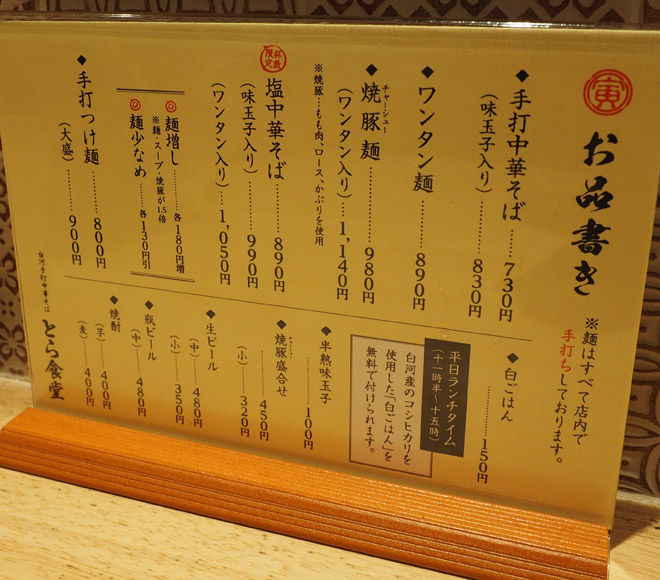 寅
お品書き
※麺はすべて店内で
手打ちしております。
◆手打中華そば……730円
(味玉子入り)……830円
◆ワンタン麺………890円
◆焼豚麺………980円
チャーシュー
(ワンタン入り)…1,140円
※焼豚…もも肉、ロース、かぶりを使用
杯数限定
塩中華そば………890円
(味玉子入り)………990円
(ワンタン入り)…1,050円
麺増し………各180円増
※麺・スープ・焼豚が1.5倍
麺少なめ……各130円引
◆手打つけ麺………800円
(大盛)………900円
◆白ごはん………150円
平日ランチタイム
(十一時半~十五時)
白河産のコシヒカリを
使用した「白ごはん」を
無料で付けられます。
◆半熟味玉子………100円
◆焼豚盛合せ………450円
(小)………320円
◆生ビール
(中)………480円
(小)………350円
◆瓶ビール
(中)………480円
◆焼酎
(芋)………400円
(麦)………400円
白河手打中華そば
とら食堂